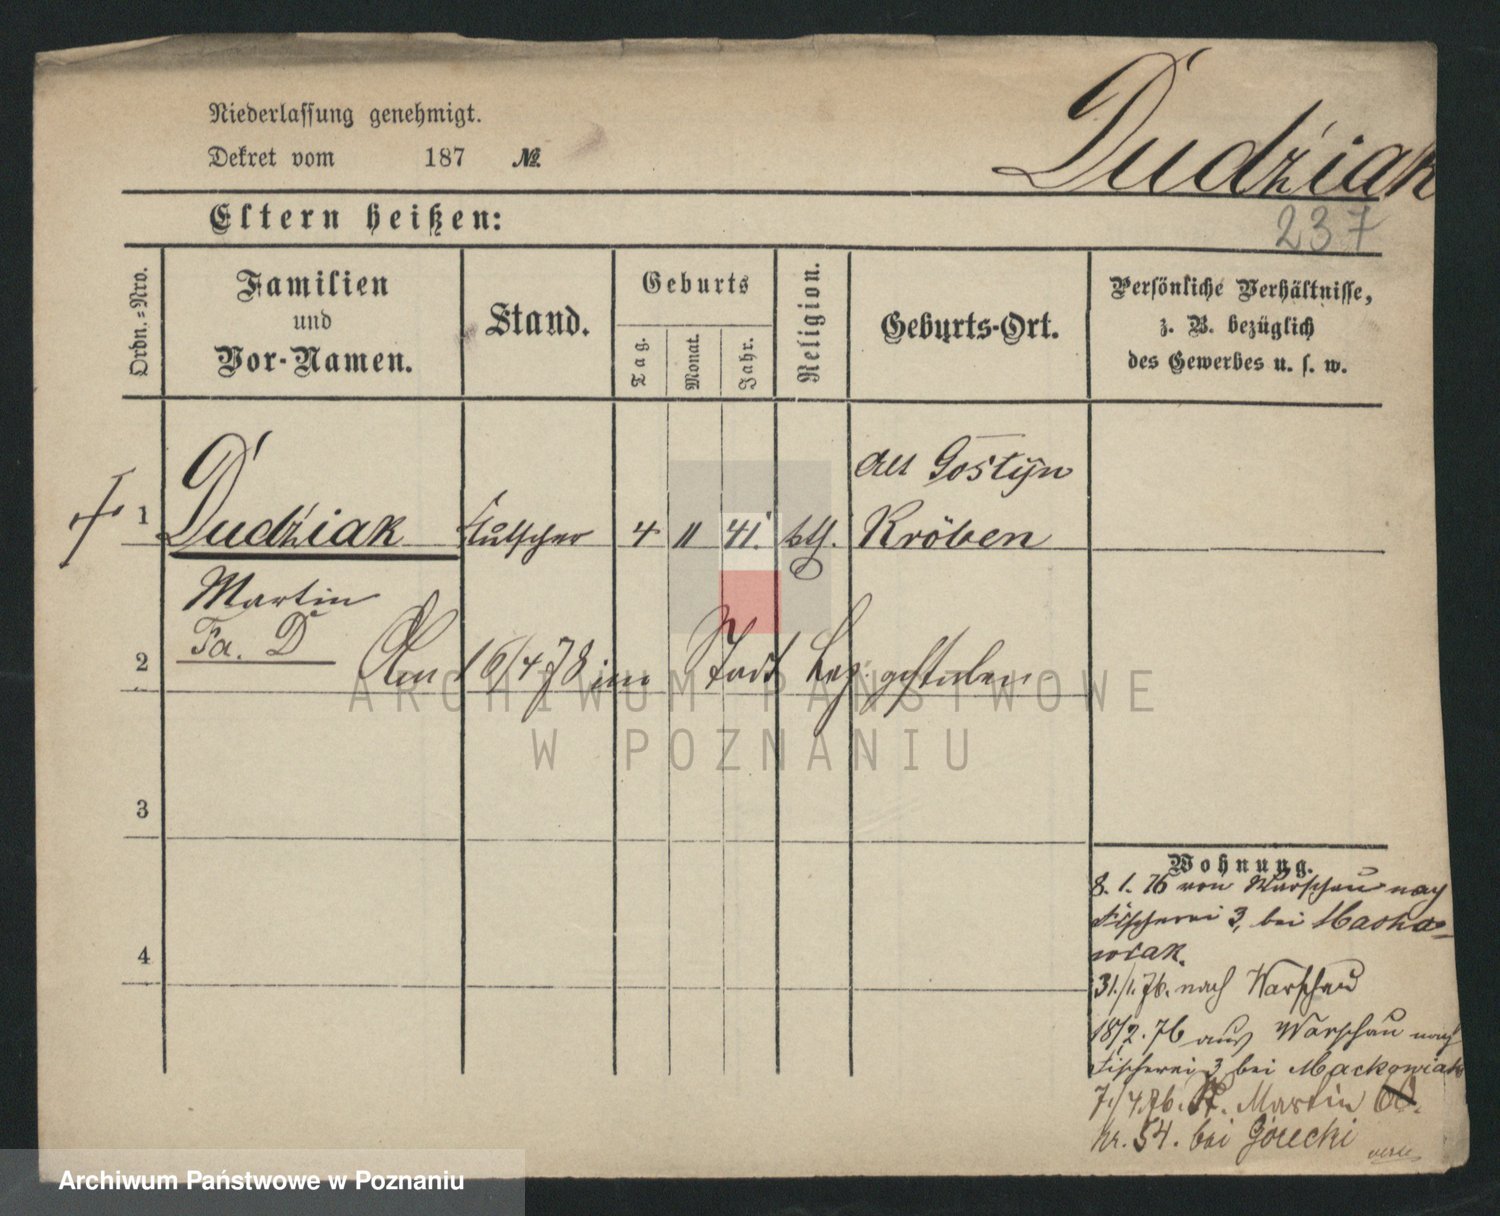 Niederlassung genehmigt.
Dekret vom 187 №
Dudziak
237
Eltern heißen:
Ordn.=Nro.
Familien
und
Vor-Namen.
Stand.
Geburts
Tag.
Monat.
Jahr.
Religion.
Geburts-Ort.
Persönliche Verhältnisse,
z. B. bezüglich
des Gewerbes u. s. w.
Alt Gostyn
1 Dudziak Kutscher 4 11 41. kth. Kröben
Martin
Fa. D
2 Am 16/4 78 im Stadt Laz. gestorben
ARCHIWUM PAŃSTWOWE
W POZNANIU
3
4
Wohnung.
8. 1. 76 von Warschau nach
Fischerei 3, bei Macko=
wiak.
31./1. 76. nach Warschau
18/2. 76 aus Warschau nach
Fischerei 3 bei Mackowiak
7./4. 76. St. Martin
nr. 54. bei Górecki
Archiwum Państwowe w Poznaniu